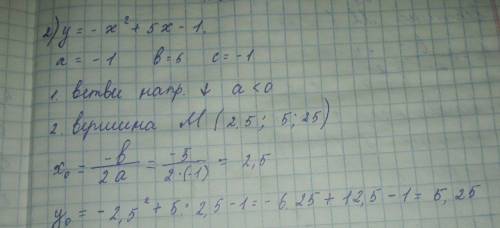 2) y = -x² + 5x - 1.
a = -1 b = 6 c = -1
1. ветви напр. ↓ a < 0
2. вершина M (2,5; 5;25)
x₀ = -b/2a = -5/2·(-1) = 2,5
y₀ = -2,5² + 5·2,5 - 1 = -6.25 + 12,5 - 1 = 5,25